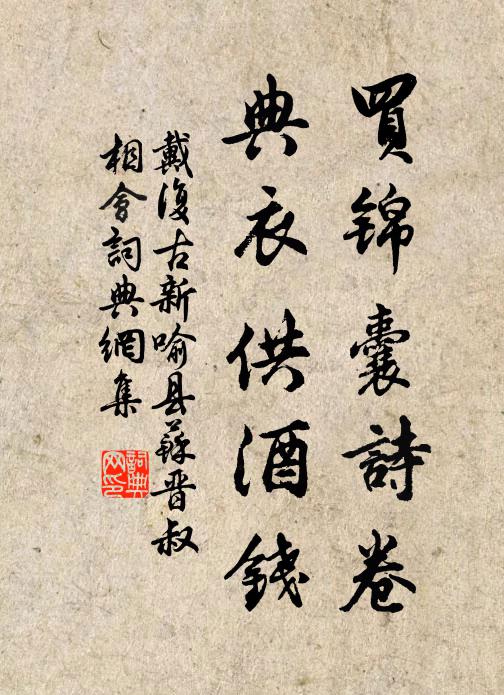 買锦囊詩卷
典衣供酒錢
戴復古新喻县蘇晋叔
相會詞典網集
詞典网印